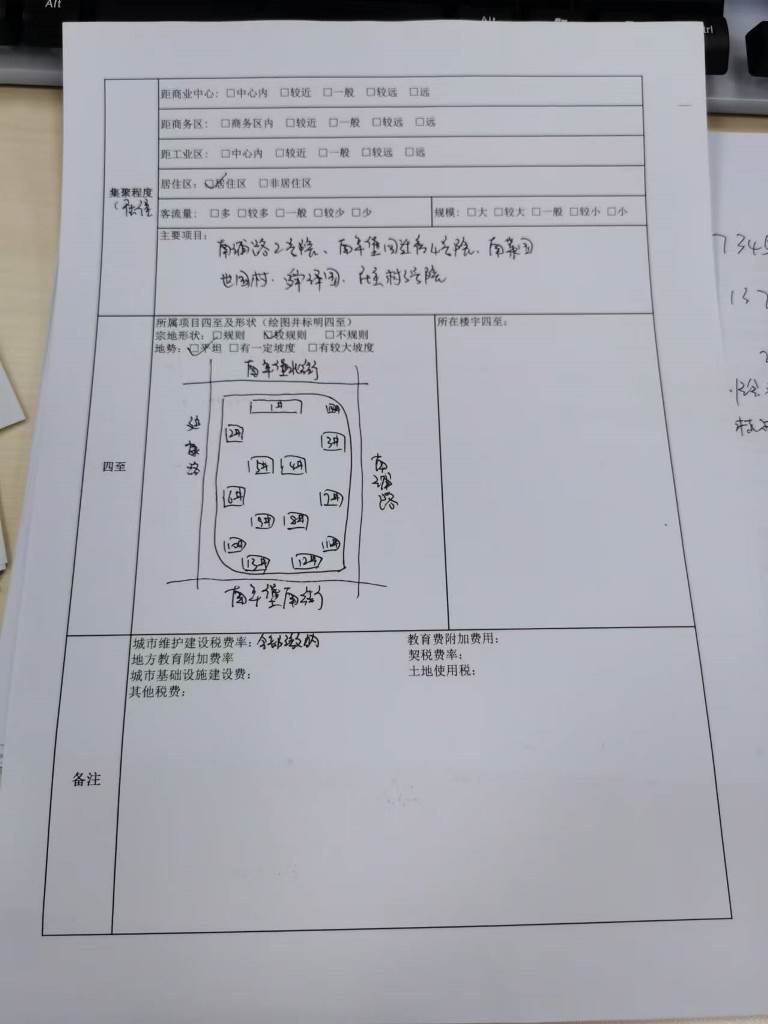 Alt
Alt
trl
距商业中心：□中心内 □较近 □一般 □较远 □远
距商务区：□商务区内 □较近 □一般 □较远 □远
距工业区：□中心内 □较近 □一般 □较远 □远
集聚程度
居住区：☑居住区 □非居住区
客流量：□多 □较多 □一般 □较少 □少
规模：□大 □较大 □一般 □较小 □小
主要项目：
路2号院、南车堡 4号院、南菜园
园村、 村 号院
四至
所属项目四至及形状（绘图并标明四至）
宗地形状：□规则 ☑较规则 □不规则
地势：☑平坦 □有一定坡度 □有较大坡度
所在楼宇四至：
南车堡北街
1#
2#
3#
5#
4#
6#
7#
9#
8#
10#
11#
13#
12#
路
南 路
南车堡南街
备注
城市维护建设税费率：全部缴纳
教育费附加费用：
地方教育附加费率
契税费率：
城市基础设施建设费：
土地使用税：
其他税费：
7345
137